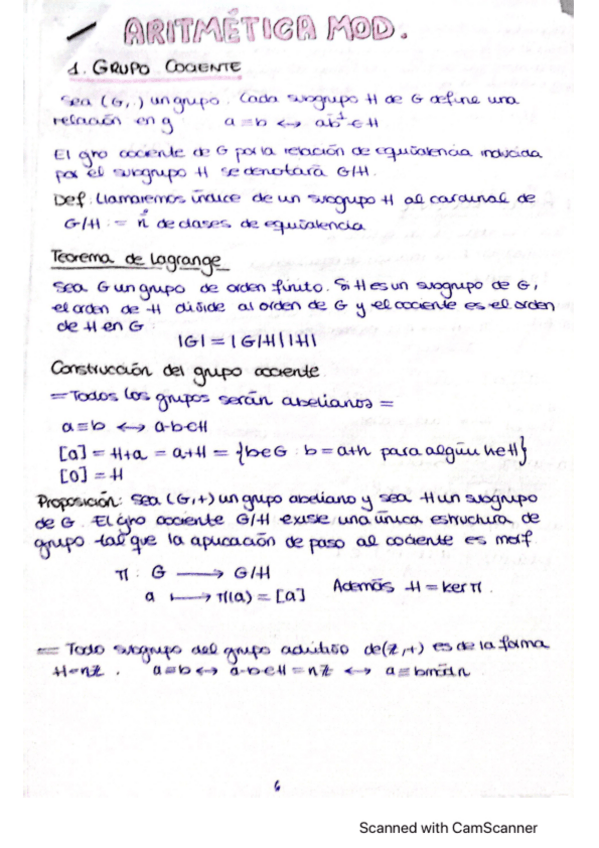 ARITMÉTICA MOD.
1. GRUPO COCIENTE
Sea (G,·) un grupo. Cada subgrupo H de G define una
relación en g a≡b ↔ ab⁻¹∈H
El gro cociente de G por la relación de equivalencia inducida
por el subgrupo H se denotará G/H.
Def. Llamaremos índice de un subgrupo H al cardinal de
G/H := nº de clases de equivalencia
Teorema de Lagrange
Sea G un grupo de orden finito. Si H es un subgrupo de G,
el orden de H divide al orden de G y el cociente es el orden
de H en G
|G| = |G/H| |H|
Construcción del grupo cociente
= Todos los grupos serán abelianos =
a≡b ↔ a-b∈H
[a] = H+a = a+H = {b∈G : b=a+h para algún h∈H}
[0] = H
Proposición: Sea (G,+) un grupo abeliano y sea H un subgrupo
de G. El gro cociente G/H existe una única estructura de
grupo tal que la aplicación de paso al cociente es morf.
π : G ⟶ G/H
a ⟼ π(a) = [a] Además H = ker π.
= Todo subgrupo del grupo aditivo de (ℤ,+) es de la forma
H=nℤ. a≡b ↔ a-b∈H=nℤ ↔ a≡b mód n
6
Scanned with CamScanner